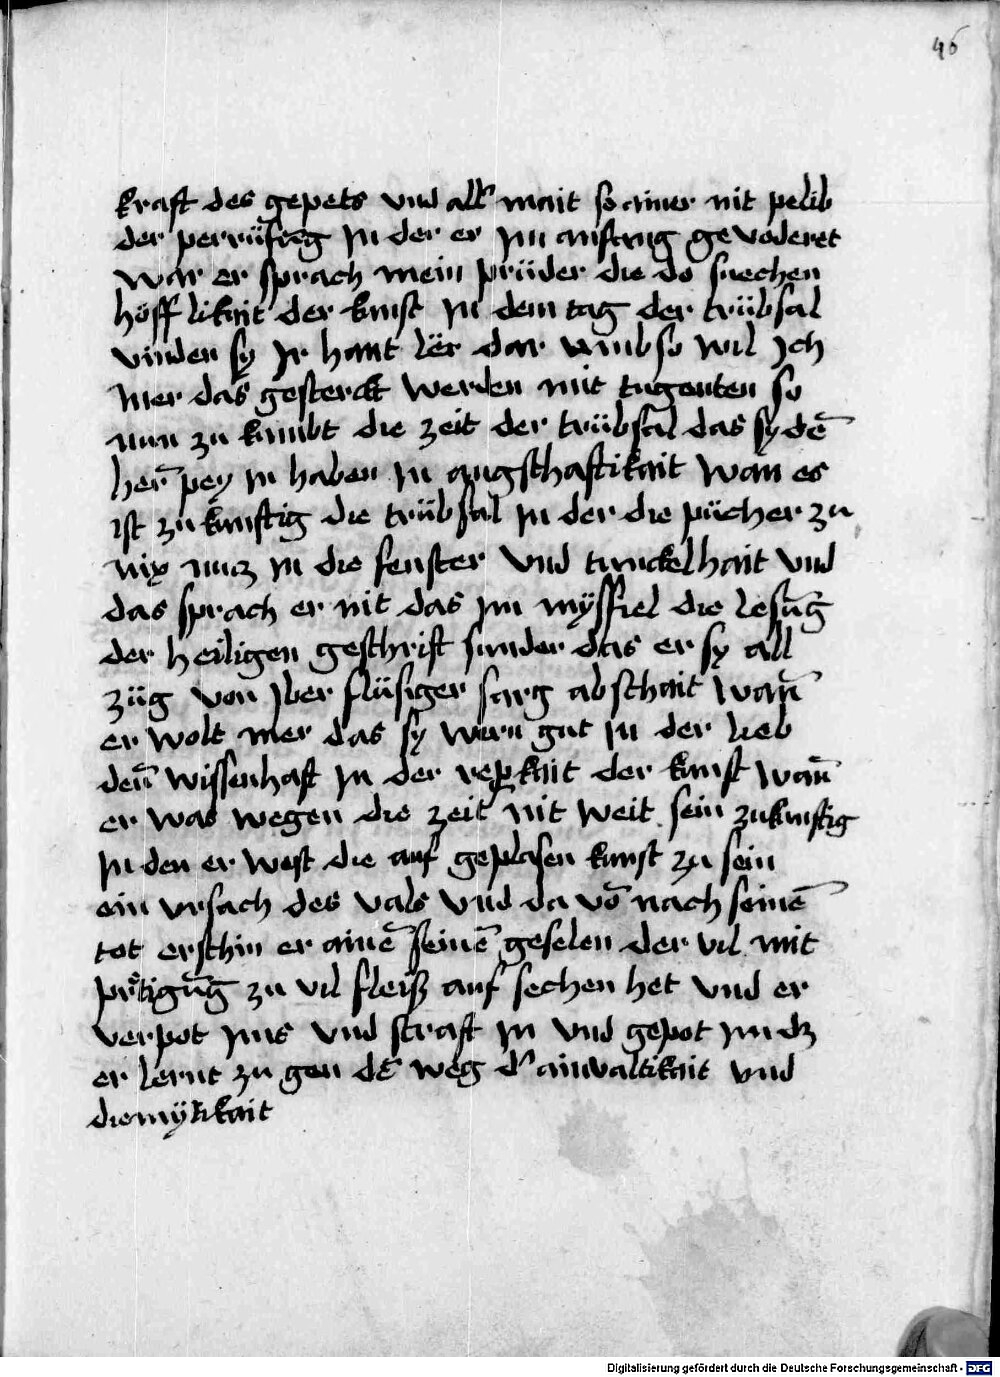 46
kraft des gepets vnd all mait so ainer nit pelib
der perrüfūg In der er Im anfang gevoderet
war er sprach mein prüder die do suechen
höfflikait der kunst In dem tag der trübsal
vinden sy Jr hant lër dar vmb so wil Ich
mer das gesterckt werden mit tugenten so
nun zu kumbt die zeit der trübsal das sy dē
her̄ pey In haben In angsthaftikait wan es
ist zu kunftig die trübsal In der die pücher zu
nix nucz In die fenster vnd tunckelhait vnd
das sprach er nit das Im mysfiel die lesūg
der heiligen geschrift sunder das er sy all
züg von Jber flüsiger sarg abschait wan̄
er wolt mer das sy wern gut In der lieb
den̄ wissenhaft In der kait der kunst wan̄
er was wegen die zeit nit weit sein zukunftig
In den er west die auf geplasen kunst zu sein
ein vrsach des vals vnd da vō nach seinē
tot erschin er ainē seinē geselen der vil mit
prētigūg zu vil fleisz auf sechen het vnd er
verpot Ims vnd straft In vnd gepot Im dz
er lernt zu gen dē weg d' ainvaltikait vnd
diemytikait
Digitalisierung gefördert durch die Deutsche Forschungsgemeinschaft - DFG